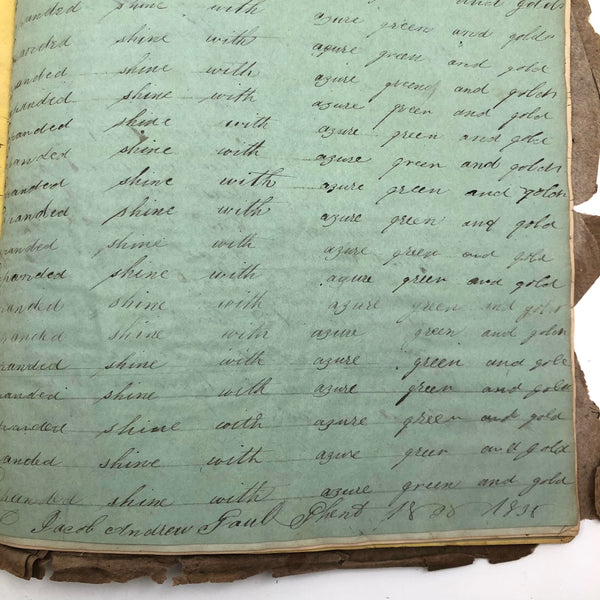 and golds
anded shine with azure green and golds
anded shine with azure green and gold
anded shine with azure green and golds
handed shine with azure green and gold
anded shine with azure green and gold
anded shine with azure green and golds
anded shine with azure green and golds
anded shine with azure green and gold
anded shine with azure green and gold
handed shine with azure green and gold
anded shine with azure green and gold
handed shine with azure green and gold
randed shine with azure green and gold
anded shine with azure green and gold
handed shine with azure green and gold
anded shine with azure green and gold
handed shine with azure green and gold
Jacob Andrew Paul